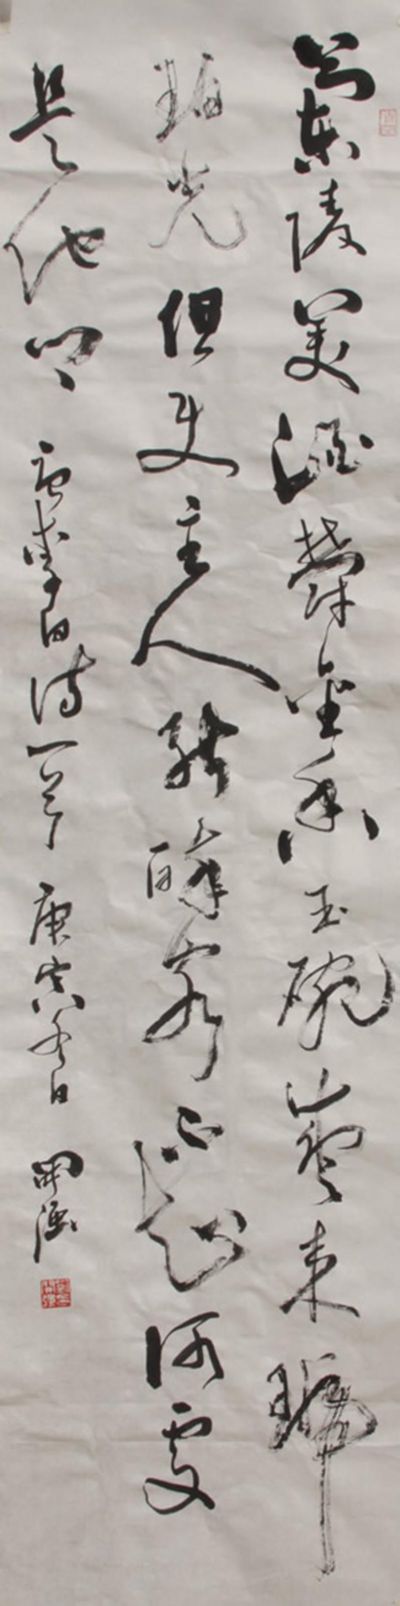 蘭陵美酒鬱金香玉碗盛来琥
珀光但使主人能醉客不知何處
是他鄉 唐李白詩一首 庚寅冬日